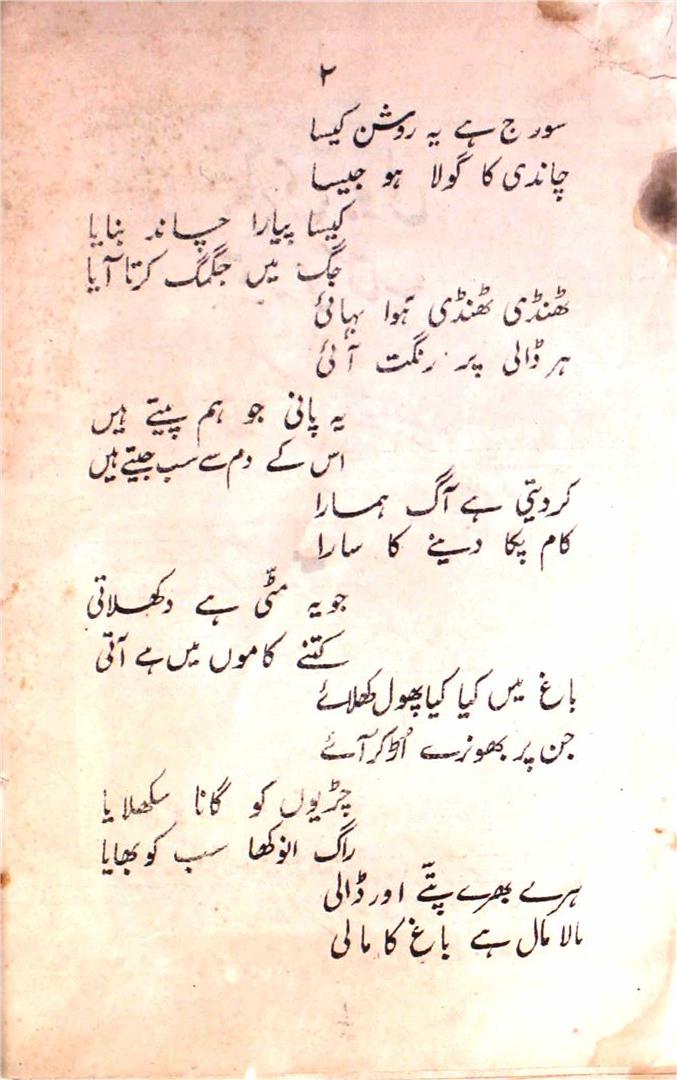 ۲
سورج ہے یہ روشن کیسا
چاندی کا گولا ہو جیسا
کیسا پیارا چاند بنایا
جگ میں جگمگ کرتا آیا
ٹھنڈی ٹھنڈی ہوا بہائی
ہر ڈالی پر رنگت آئی
یہ پانی جو ہم پیتے ہیں
اس کے دم سے سب جیتے ہیں
کردیتی ہے آگ ہمارا
کام پکا دینے کا سارا
جو یہ مٹّی ہے دکھلاتی
کتنے کاموں میں ہے آتی
باغ میں کیا کیا پھول کھلائے
جن پر بھونرے اُڑ کر آئے
چڑیوں کو گانا سکھلایا
راگ انوکھا سب کو بھایا
ہرے بھرے پتّے اور ڈالی
مالا مال ہے باغ کا مالی